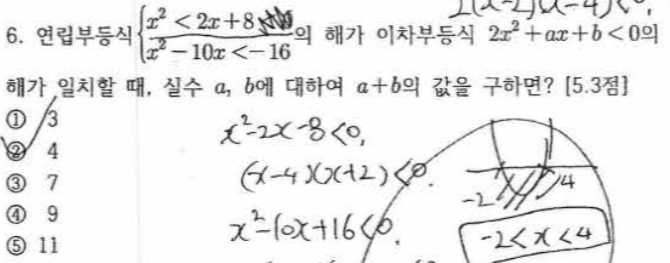 2(x-2)(x-4)<0,
6. 연립부등식 { x² < 2x+8
x² - 10x < -16 의 해가 이차부등식 2x² + ax + b < 0의
해가 일치할 때, 실수 a, b에 대하여 a+b의 값을 구하면? [5.3점]
① 3
② 4
③ 7
④ 9
⑤ 11
x²-2x-8<0,
(x-4)(x+2)<0.
x²-10x+16<0,
-2 4
-2<x<4